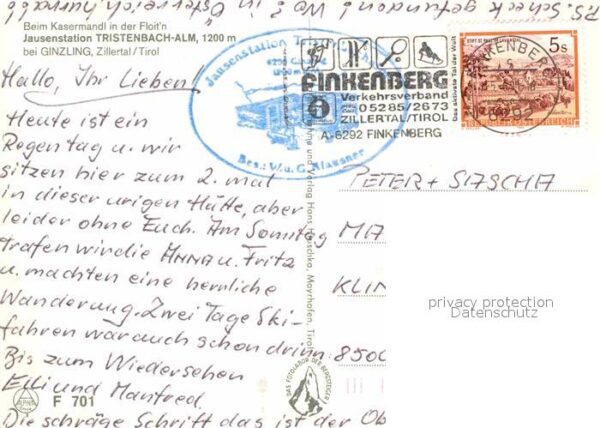 Beim Kasermandl in der Floit'n
Jausenstation TRISTENBACH-ALM, 1200 m
bei GINZLING, Zillertal/Tirol
Hallo, Ihr Lieben!
Heute ist ein
Regentag u. wir
sitzen hier zum 2. mal
in dieser urigen Hütte, aber
leider ohne Euch. Am Sonntag
trafen wir die ANNA u. Fritz
u. machten eine herrliche
Wanderung. Zwei Tage Ski-
fahren war auch schon drinn.
Bis zum Wiedersehen
Elli und Manfred.
Die schräge Schrift das ist der Ob
F 701
PS. Scheck gefunden
in Österreich, hurra
Jausenstation
1200 m
Bes.: W. u. G. Klausner
FINKENBERG
Verkehrsverband
05285/2673
ZILLERTAL/TIROL
A-6292 FINKENBERG
Das aktivste Tal der Welt
FINKENBERG
6292
5s
PETER + SASCHA
MA
KLIN
8500
und Verlag Hans Hruschka, Mayrhofen, Tirol
DAS FOTOLABOR DER BERGSTEIGER
privacy protection
Datenschutz